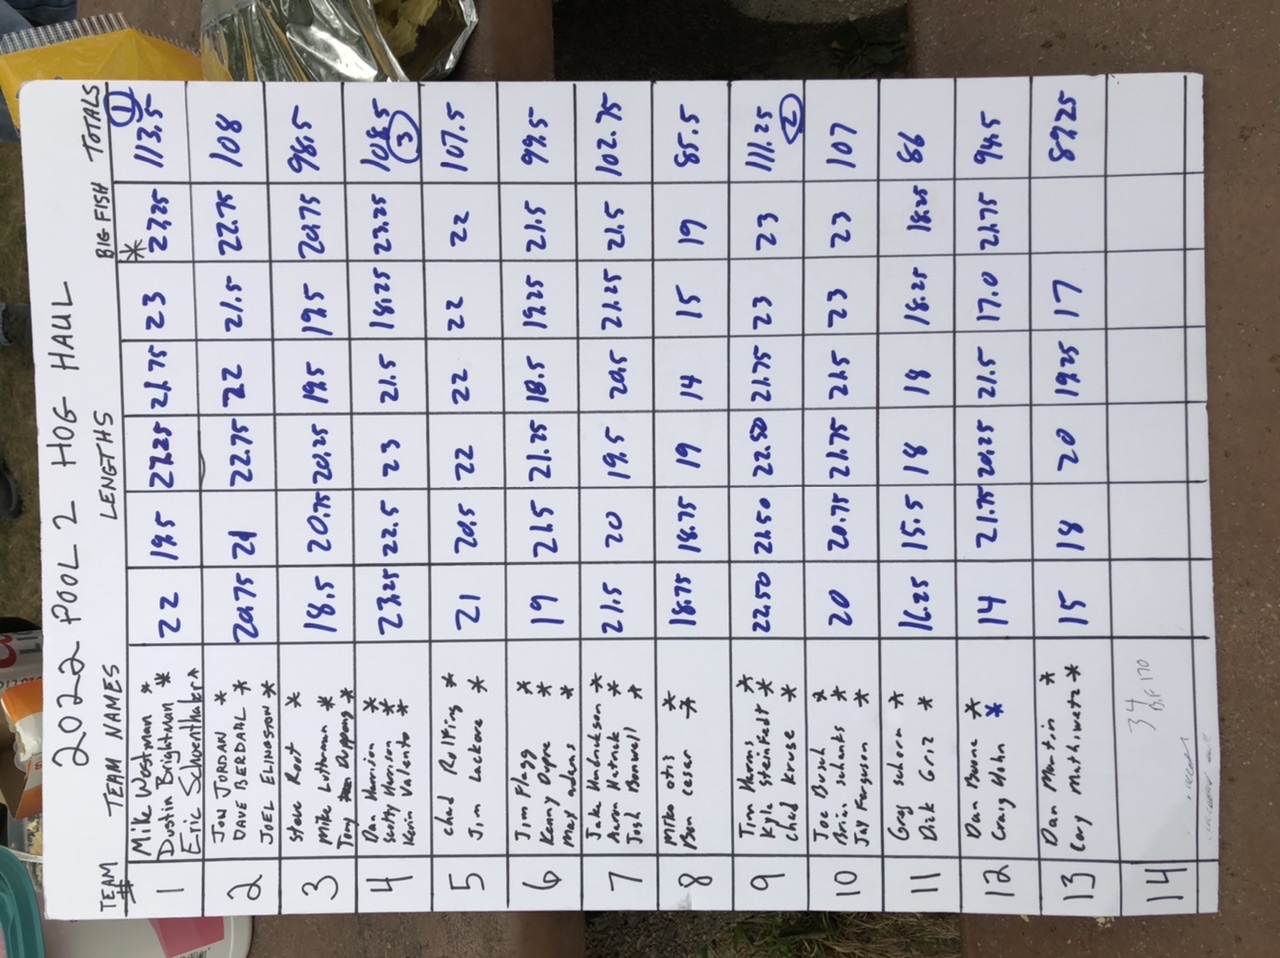 2022 POOL 2 HOG HAUL
TEAM # TEAM NAMES LENGTHS BIG FISH TOTALS
1 Mike Westman * 22 19.5 23.25 21.75 23 * 23.25 113.5 1
Dustin Brightman *
Eric Schoenthaler *
2 JON JORDAN * 20.75 21 22.75 22 21.5 22.75 108
DAVE BERDAHL *
JOEL ELINGSTON *
3 Steve Root * 18.5 20.75 20.25 19.5 19.5 20.75 98.5
Mike Lutterman *
Tony *
4 Dan Harrison * 23.25 22.5 23 21.5 18.25 23.25 108.5 3
Scotty Harrison *
Kevin Valento *
5 Chad Rolfing * 21 20.5 22 22 22 22 107.5
Jim Lackore *
6 Jim Flagg * 19 21.5 21.25 18.5 19.25 21.5 99.5
Kenny Dupre *
Max adams *
7 Jake * 21.5 20 19.5 20.5 21.25 21.5 102.75
Aaron *
Josh *
8 Mike otis * 18.75 18.75 19 14 15 19 85.5
Ben ceser *
9 Tim Harris * 22.50 21.50 22.50 21.75 23 23 111.25 2
Kyle Steinfedt *
Chad Kruse *
10 Joe Busch * 20 20.75 21.75 21.5 23 23 107
Brian Schanks *
Jay Ferguson *
11 Greg Schorn * 16.25 15.5 18 18 18.25 18.25 86
Dick Griz *
12 Dan * 14 21.75 20.25 21.5 17.0 21.75 94.5
Craig Hohn *
13 Dan Martin * 15 18 20 19.25 17 89.25
Cory *
14 34
B.F 170